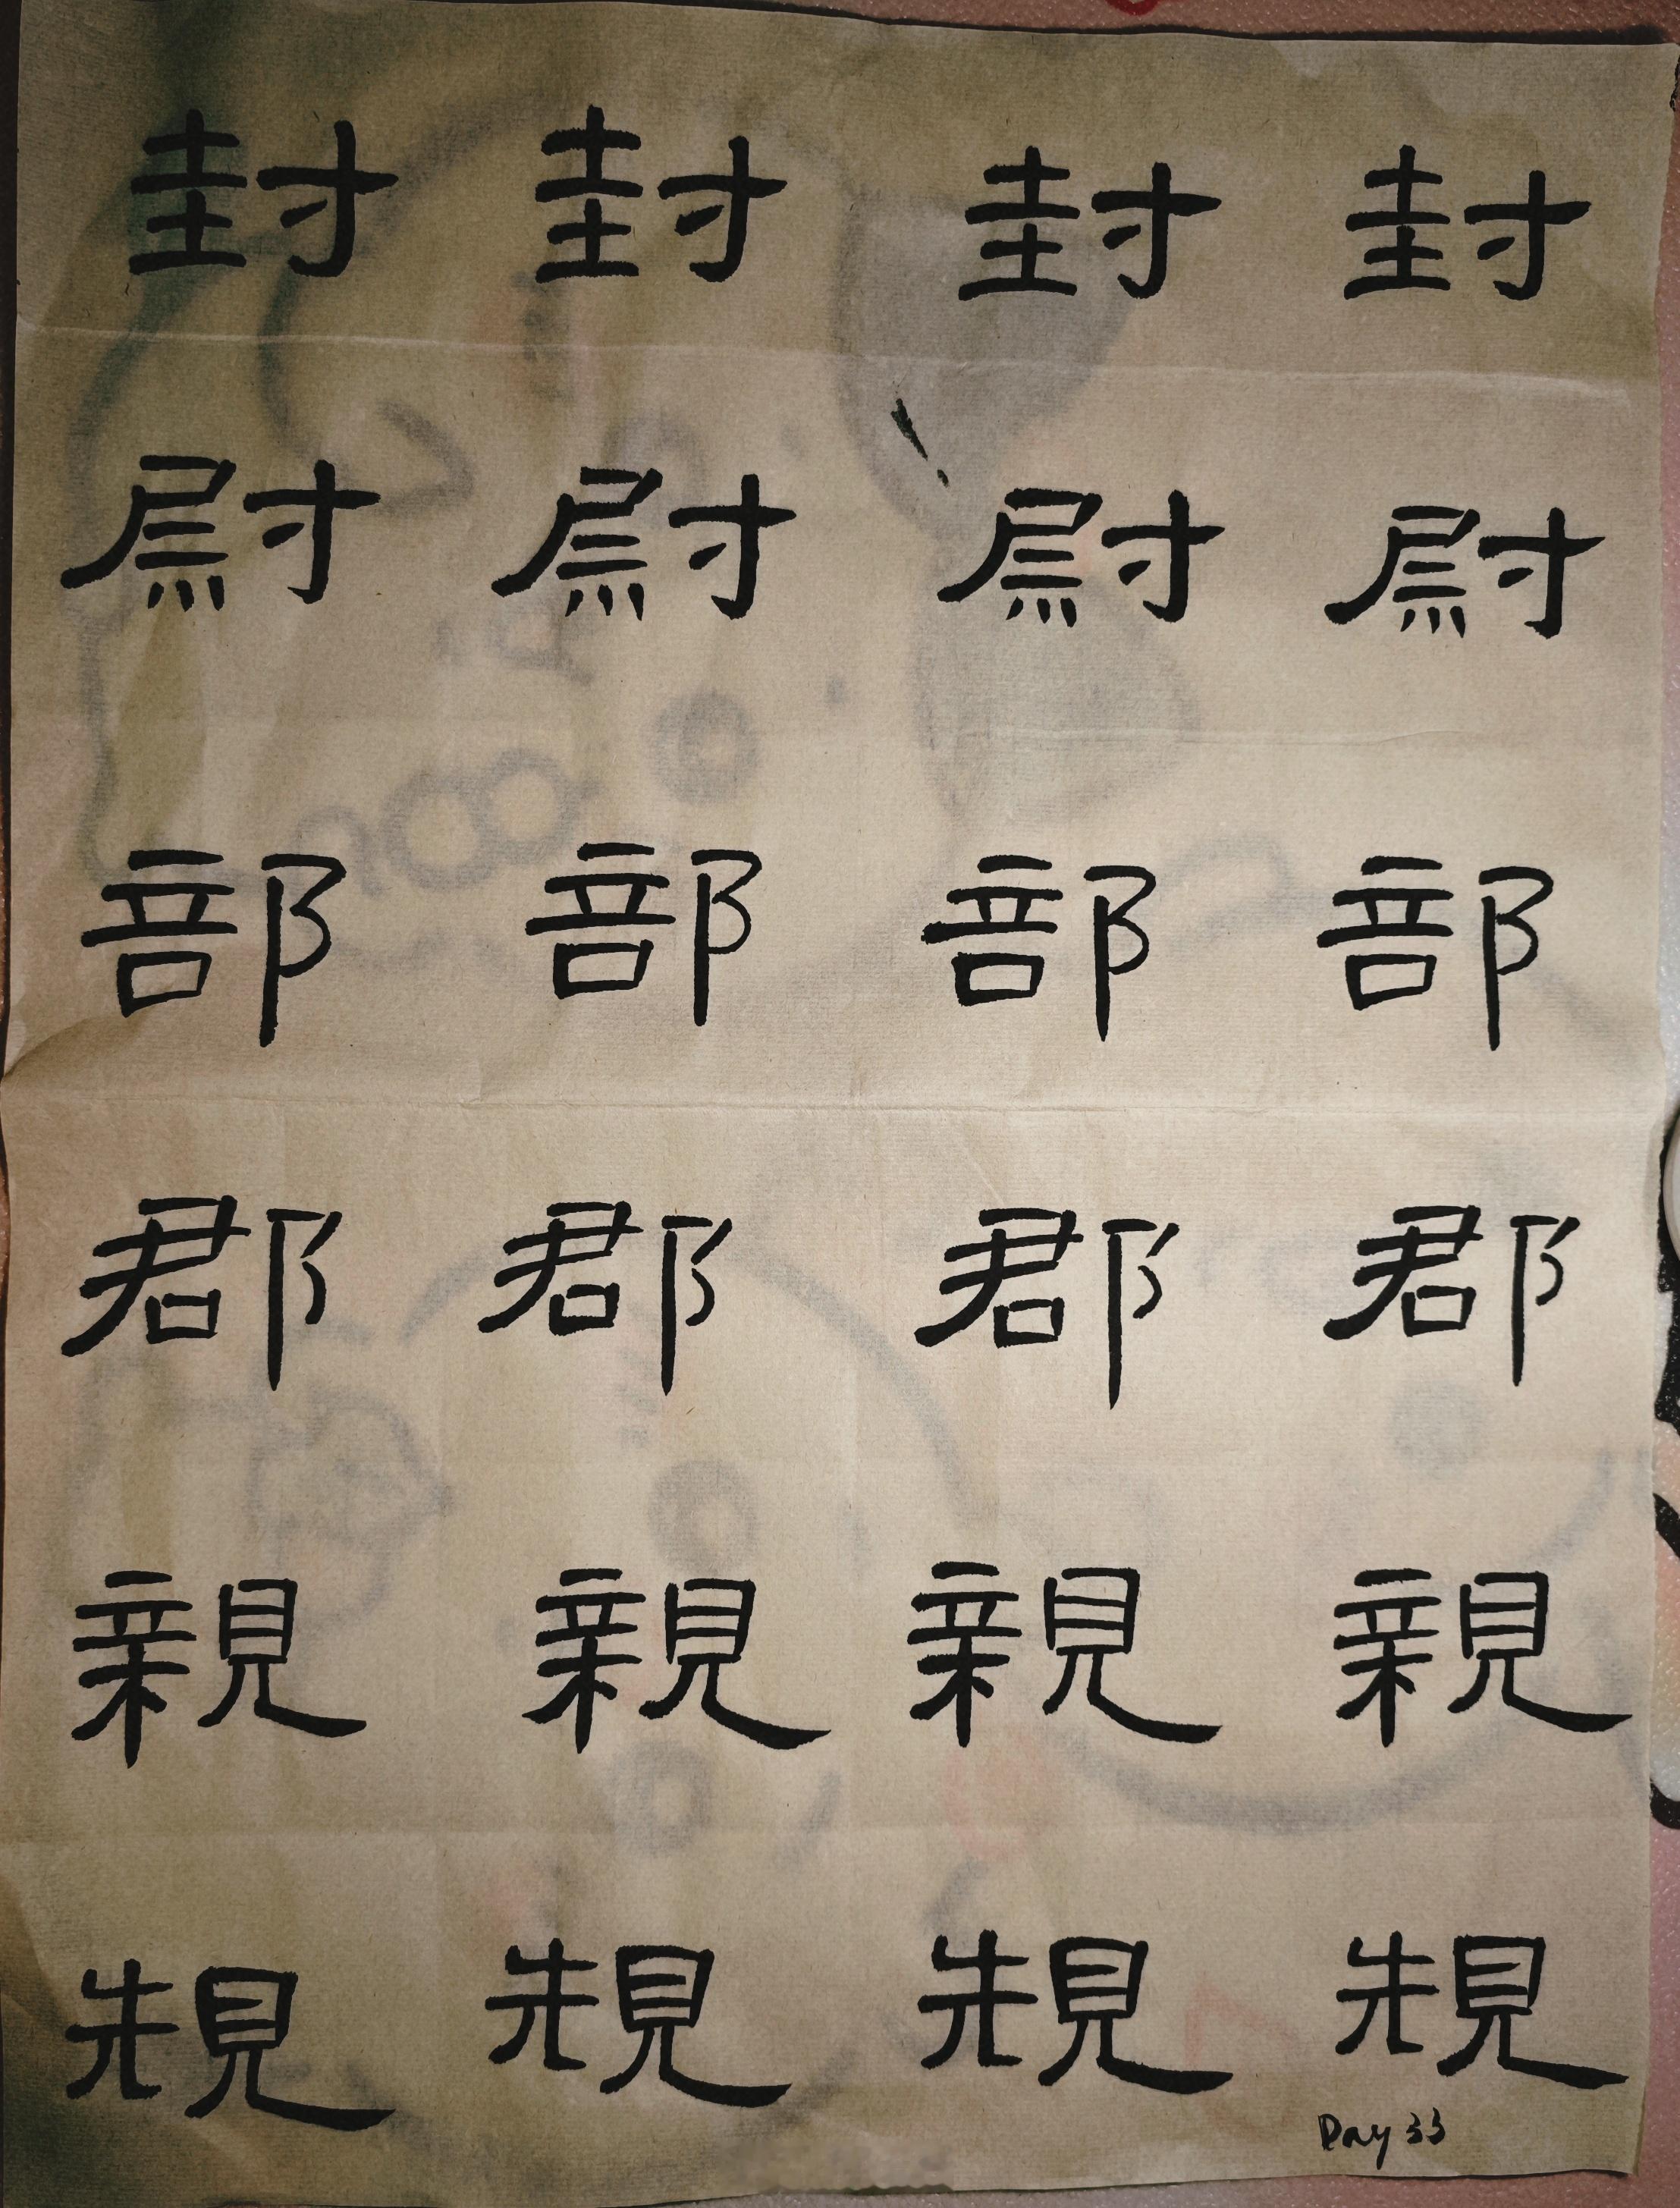 封 封 封 封
尉 尉 尉 尉
部 部 部 部
郡 郡 郡 郡
親 親 親 親
規 規 規 規
Day 33